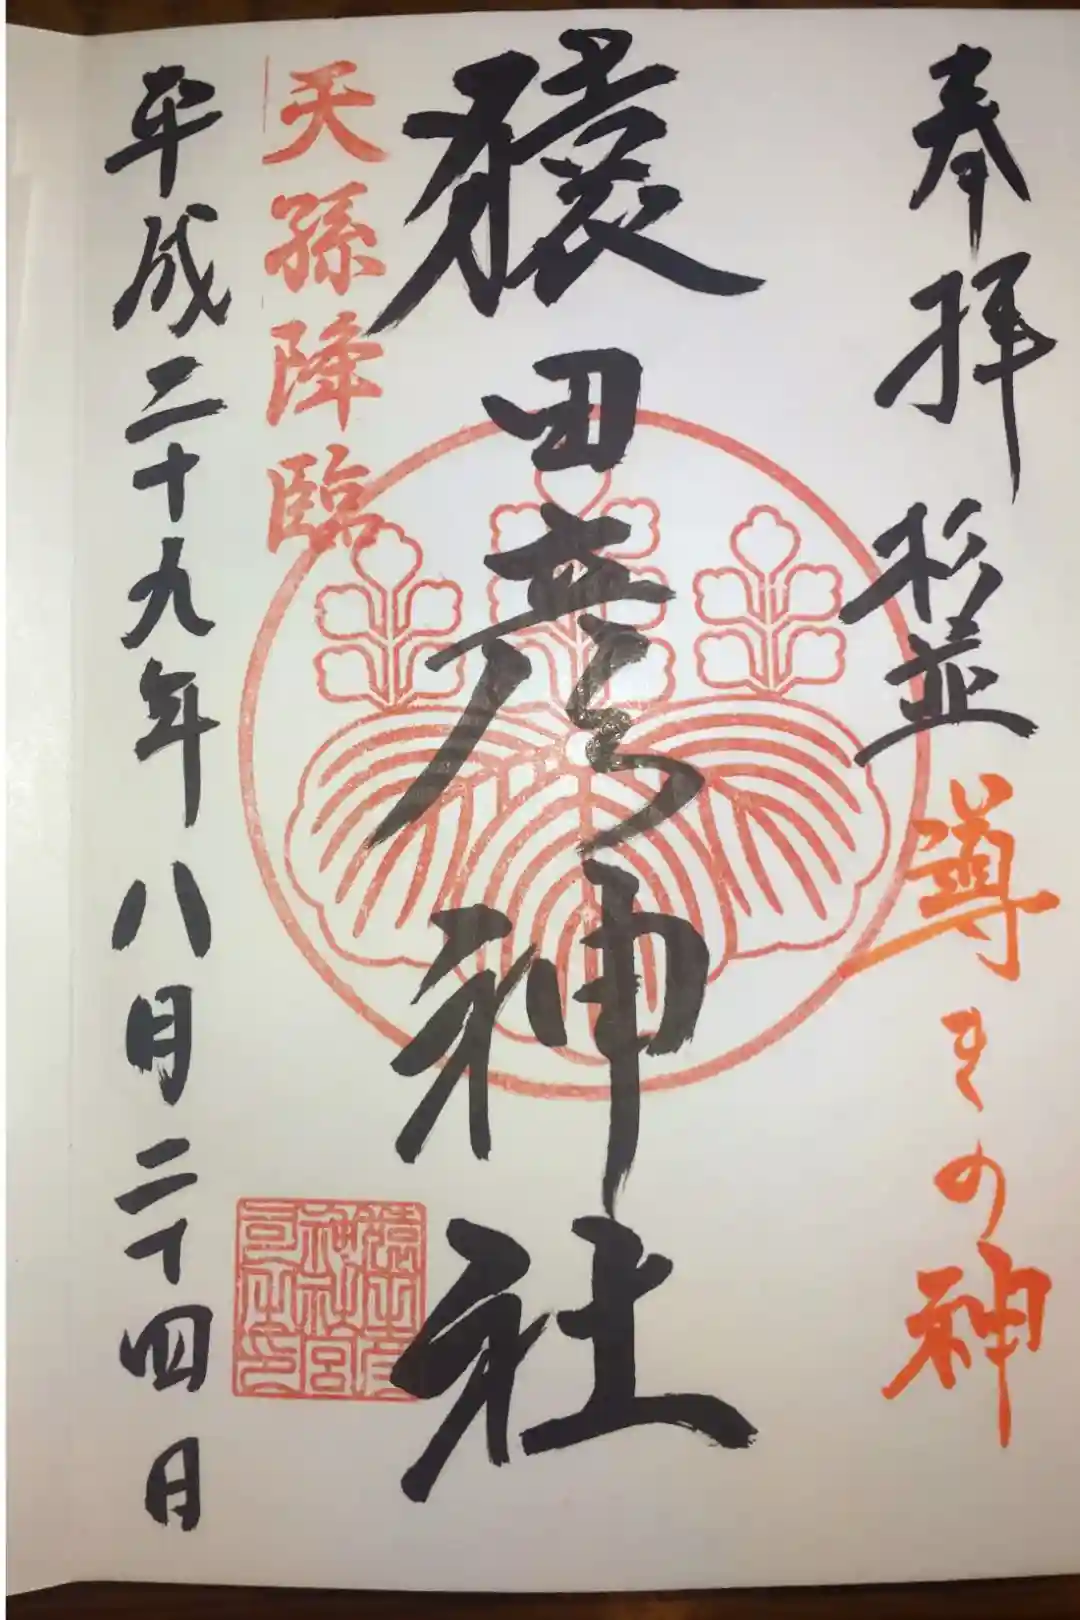 奉拝 杉並 導きの神
猿田彦神社
天孫降臨
平成二十九年八月二十四日
猿田彦
神社宮
司之印